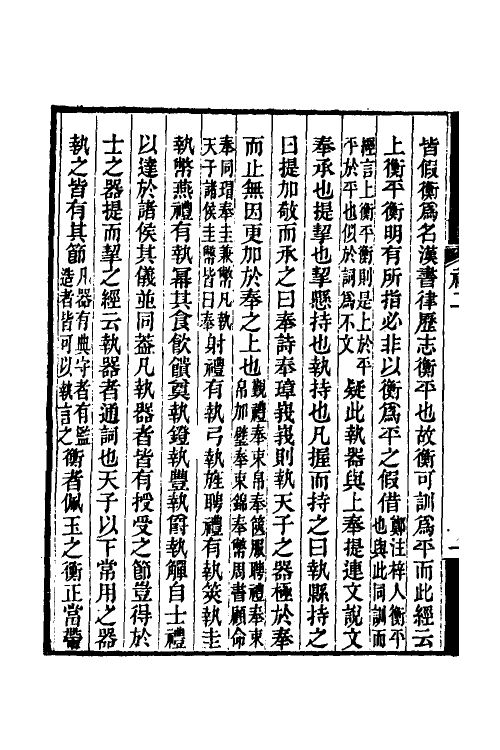 皆假衡爲名漢書律歷志衡平也故衡可訓爲平而此經云
上衡平衡明有所指必非以衡爲平之假借鄭注梓人衡平也與此同訓而
經言上衡平衡則是上於平平於平也似於詞爲不文疑此執器與上奉提連文說文
奉承也提挈也挈懸持也執持也凡握而持之曰執縣持之
曰提加敬而承之曰奉詩奉璋峩峩則執天子之器極於奉
而止無因更加於奉之上也覲禮奉束帛奉篋服聘禮奉束帛加璧奉束錦奉幣周書顧命
奉同瑁奉圭兼幣凡執天子諸侯圭幣皆曰奉射禮有執弓執旌聘禮有執筴執圭
執幣燕禮有執冪其食飲饋奠執鐙執豐執爵執觶自士禮
以達於諸侯其儀並同葢凡執器者皆有授受之節豈得於
士之器提而挈之經云執器者通詞也天子以下常用之器
執之皆有其節凡器有典守者有監造者皆可以執言之衡者佩玉之衡正當帶
禮二